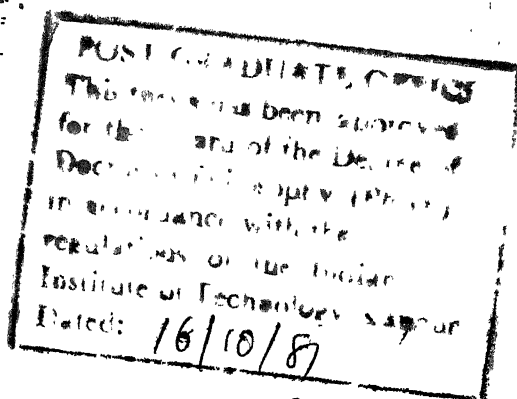 POST GRADUATE OFFICE
This thesis has been approved
for the award of the Degree of
Doctor of Philosophy (Ph.D.)
in accordance with the
regulations of the Indian
Institute of Technology Kanpur
Dated: 16/10/87